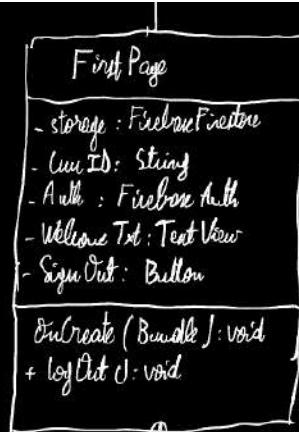 First Page
- storage : FirebaseFirestore
- CurrID: String
- Auth : Firebase Auth
- Welcome Txt : Text View
- Sign Out : Button
OnCreate (Bundle) : void
+ log Out () : void